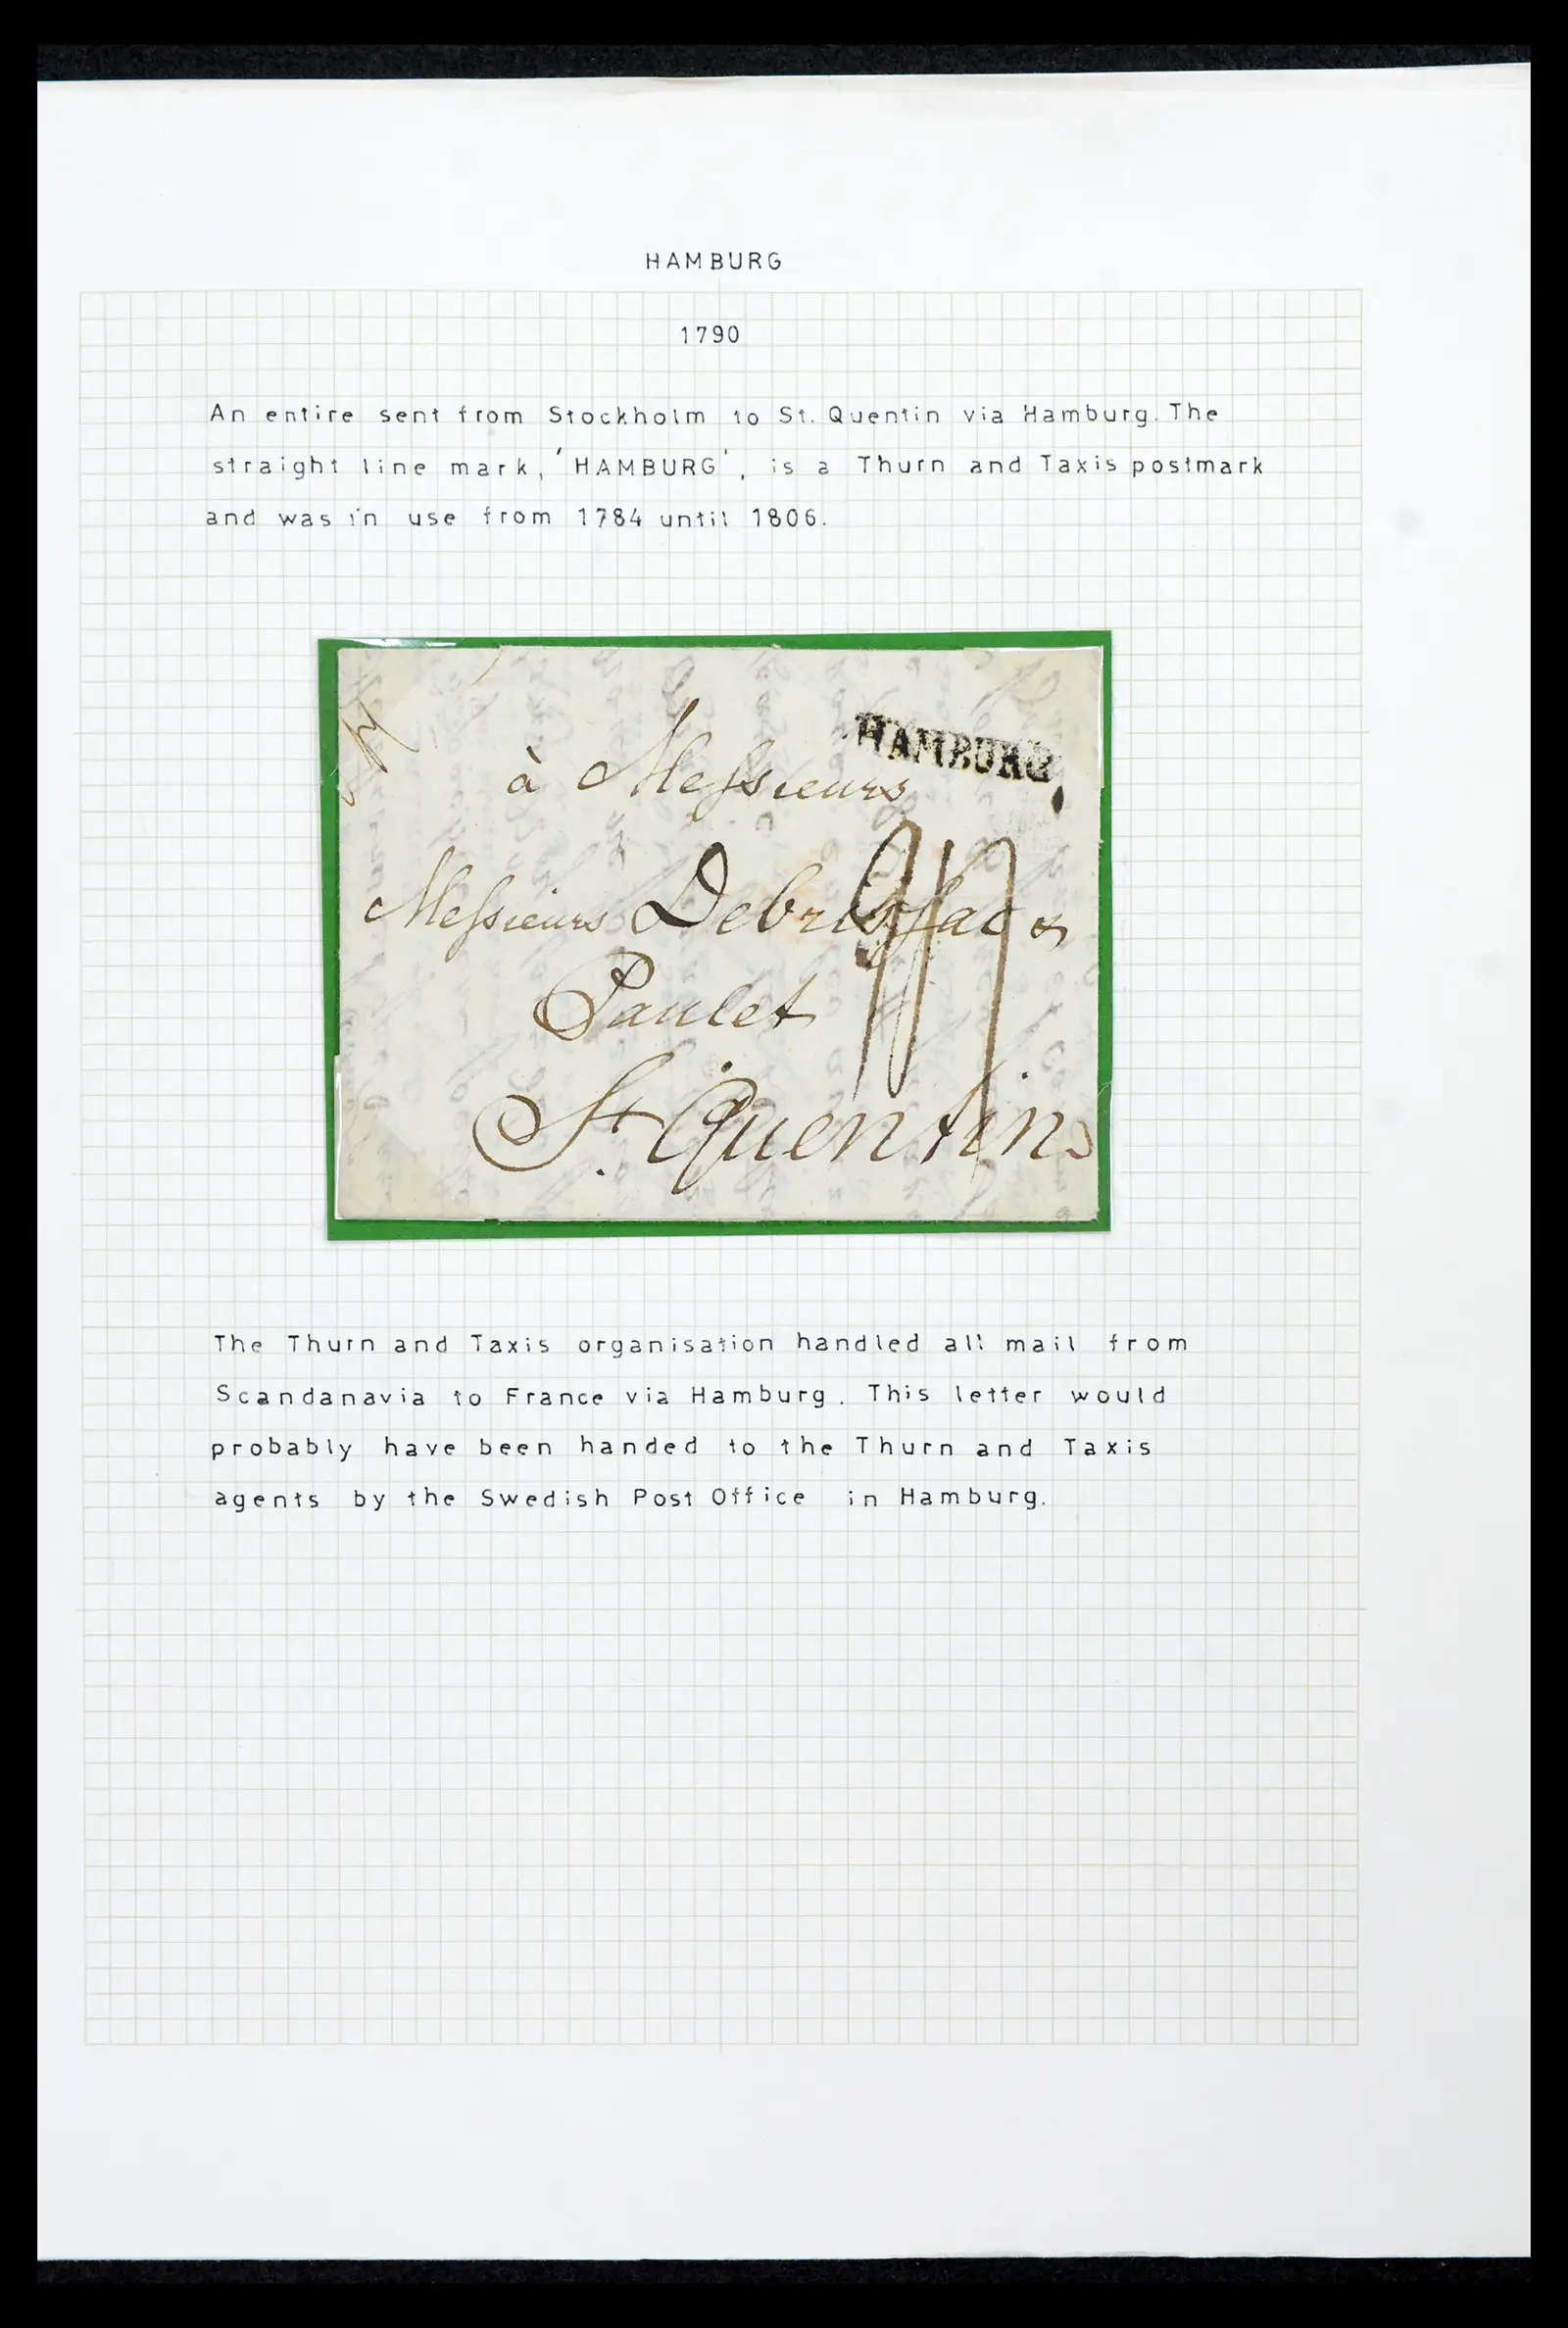 HAMBURG
1790
An entire sent from Stockholm to St. Quentin via Hamburg. The
straight line mark, 'HAMBURG', is a Thurn and Taxis postmark
and was in use from 1784 until 1806.
HAMBURG
à Messieurs
Messieurs
Paulet
St. Quentin
The Thurn and Taxis organisation handled all mail from
Scandanavia to France via Hamburg. This letter would
probably have been handed to the Thurn and Taxis
agents by the Swedish Post Office in Hamburg.